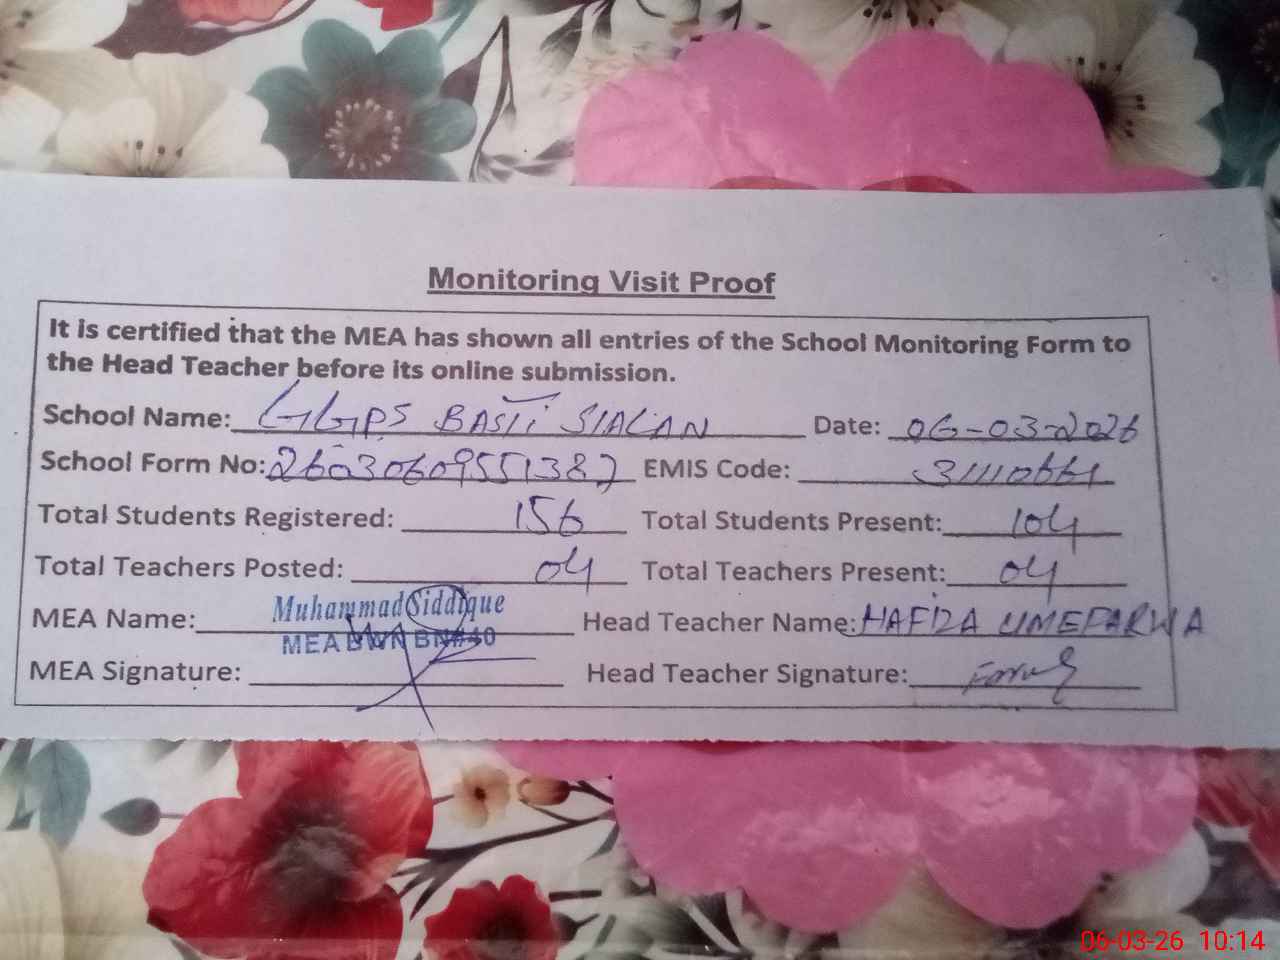 Monitoring Visit Proof
It is certified that the MEA has shown all entries of the School Monitoring Form to
the Head Teacher before its online submission.
School Name: GGPS BASTI SIALAN Date: 06-03-2026
School Form No: 26030609551387 EMIS Code: 31110661
Total Students Registered: 156 Total Students Present: 104
Total Teachers Posted: 04 Total Teachers Present: 04
MEA Name: Muhammad Siddique Head Teacher Name: HAFIZA UMEFARWA
MEA BWN BN#40
MEA Signature: Head Teacher Signature:
06-03-26 10:14